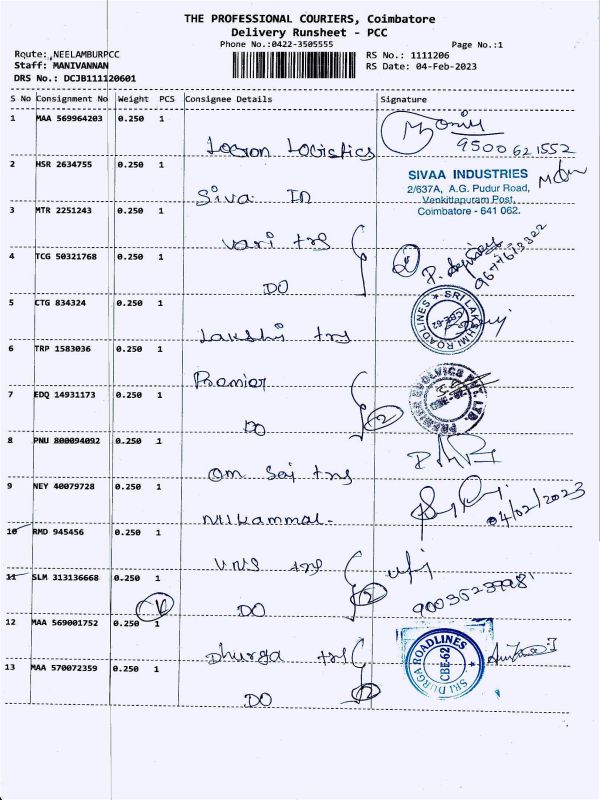 THE PROFESSIONAL COURIERS, Coimbatore
Delivery Runsheet - PCC
Phone No.:0422-3505555 Page No.:1
Route: NEELAMBURPCC RS No.: 1111206
Staff: MANIVANNAN RS Date: 04-Feb-2023
DRS No.: DCJB111120601
S No Consignment No Weight PCS Consignee Details Signature
1 MAA 569964203 0.250 1 Logron Logistics 9500621552
2 HSR 2634755 0.250 1 Siva IN
SIVAA INDUSTRIES
2/637A, A.G. Pudur Road,
Venkittapuram Post,
Coimbatore - 641 062.
3 MTR 2251243 0.250 1 Vari trs
4 TCG 50321768 0.250 1 DO 2
5 CTG 834324 0.250 1 Lakshi trs
SRI LAKSHMI ROADLINES
CBE-62
6 TRP 1583036 0.250 1 Premier
7 EDQ 14931173 0.250 1 DO 2
PREMIER EVOLVICS PVT. LTD.
8 PNU 800094092 0.250 1 Om Sai trs
9 NEY 40079728 0.250 1 04/02/2023
10 RMD 945456 0.250 1 VNS trs
11 SLM 313136668 0.250 1 DO 2
12 MAA 569001752 0.250 1 Dhurga trs
SRI DURGA ROADLINES
CBE-62
13 MAA 570072359 0.250 1 DO 2